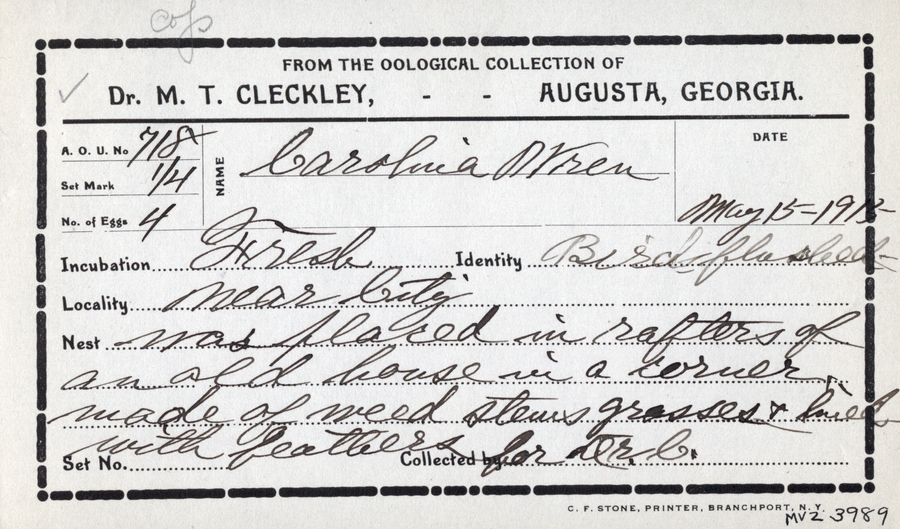 cofs
FROM THE OOLOGICAL COLLECTION OF
✓ Dr. M. T. CLECKLEY, - - AUGUSTA, GEORGIA.
A. O. U. No 718
Set Mark 1/4
No. of Eggs 4
NAME Carolina Wren
DATE
May 15-1913
Incubation Fresh Identity Birds flushed
Locality near City
Nest was placed in rafters of
an old house in a corner,
made of weed stems grasses & lined
with feathers
Set No. Collected by for Dr. C.
C. F. STONE, PRINTER, BRANCHPORT, N. Y.
MVZ 3989